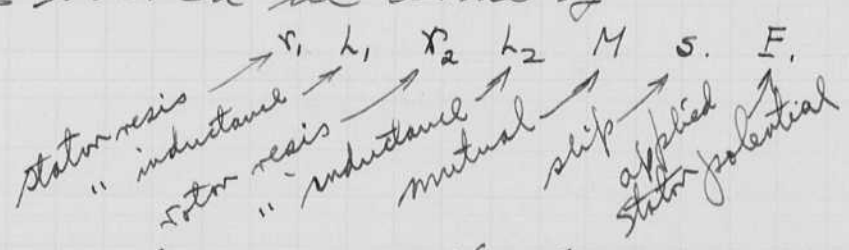 r₁ L₁ r₂ L₂ M s. E,
stator resis
" inductance
rotor resis
" inductance
mutual
slip
applied
stator potential